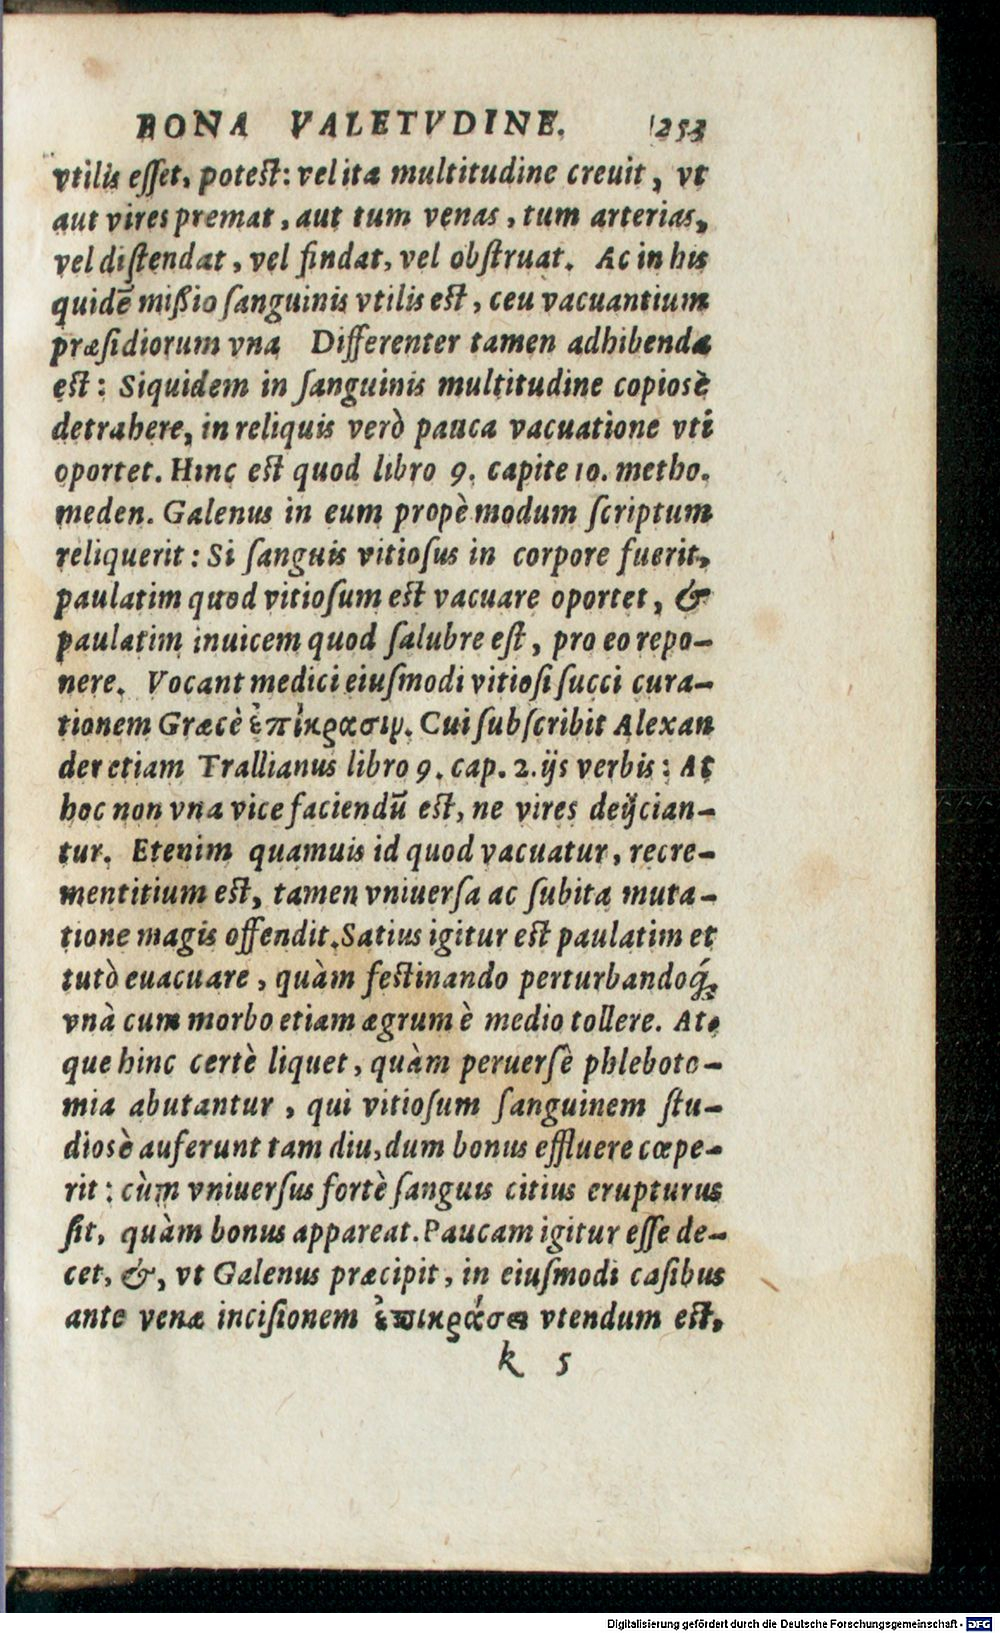 BONA VALETVDINE. 253
vtilis esset, potest: vel ita multitudine creuit, vt
aut vires premat, aut tum venas, tum arterias,
vel distendat, vel findat, vel obstruat. Ac in his
quidē mißio sanguinis vtilis est, ceu vacuantium
præsidiorum vna Differenter tamen adhibenda
est: Siquidem in sanguinis multitudine copiosè
detrahere, in reliquis verò pauca vacuatione vti
oportet. Hinc est quod libro 9. capite 10. metho.
meden. Galenus in eum propè modum scriptum
reliquerit: Si sanguis vitiosus in corpore fuerit,
paulatim quod vitiosum est vacuare oportet, &
paulatim inuicem quod salubre est, pro eo repo-
nere. Vocant medici eiusmodi vitiosi succi cura-
tionem Græcè ἐπίκρασιν. Cui subscribit Alexan
der etiam Trallianus libro 9. cap. 2. ijs verbis: At
hoc non vna vice faciendū est, ne vires deijcian-
tur. Etenim quamuis id quod vacuatur, recre-
mentitium est, tamen vniuersa ac subita muta-
tione magis offendit. Satius igitur est paulatim et
tutò euacuare, quàm festinando perturbandoq́;
vnà cum morbo etiam ægrum è medio tollere. At-
que hinc certè liquet, quàm peruersè phleboto-
mia abutantur, qui vitiosum sanguinem stu-
diosè auferunt tam diu, dum bonus effluere cœpe-
rit: cùm vniuersus fortè sanguis citius erupturus
sit, quàm bonus appareat. Paucam igitur esse de-
cet, &, vt Galenus præcipit, in eiusmodi casibus
ante venæ incisionem ἐπικράσει vtendum est,
k 5
Digitalisierung gefördert durch die Deutsche Forschungsgemeinschaft - DFG